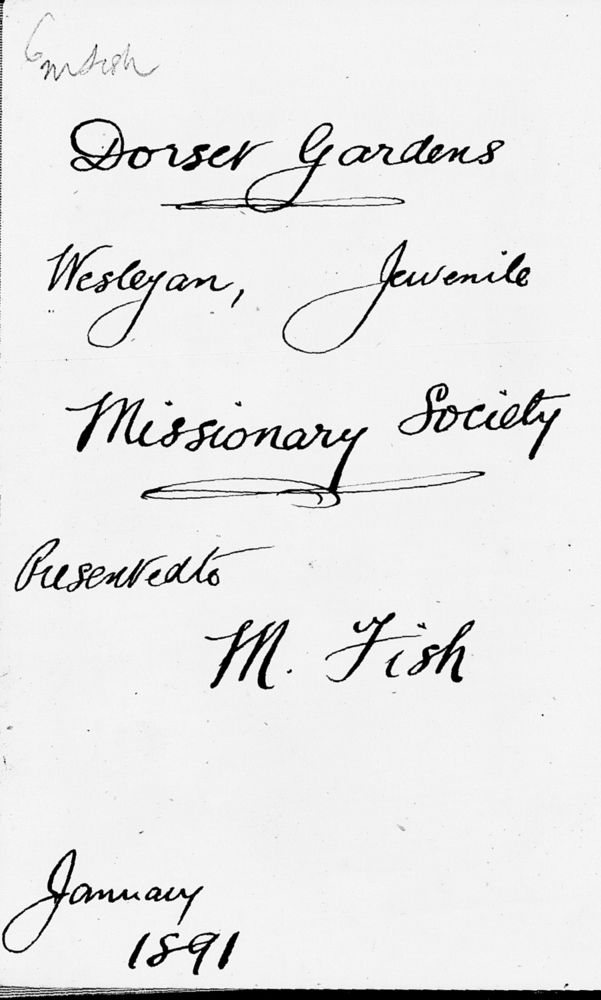 M Fish
Dorset Gardens
Wesleyan, Juvenile
Missionary Society
Presented to
M. Fish
January
1891